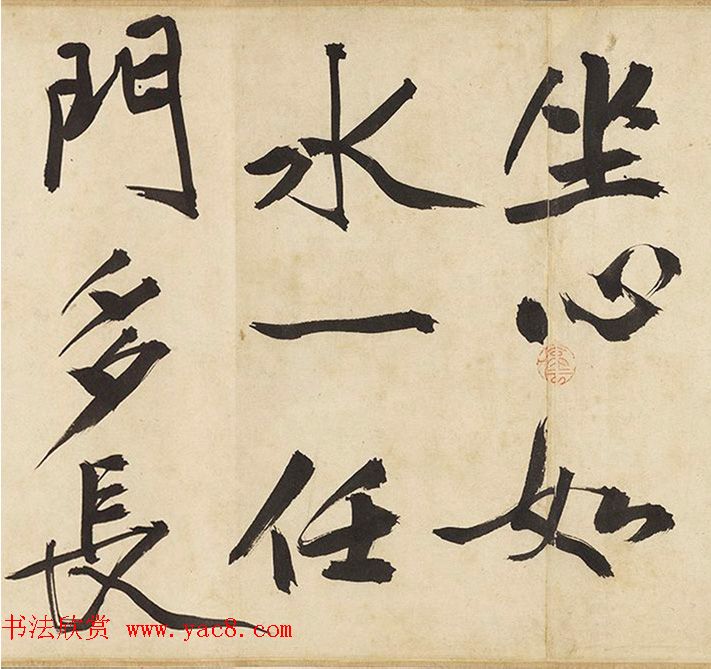 坐心如
水一任
門多長
书法欣赏 www.yac8.com